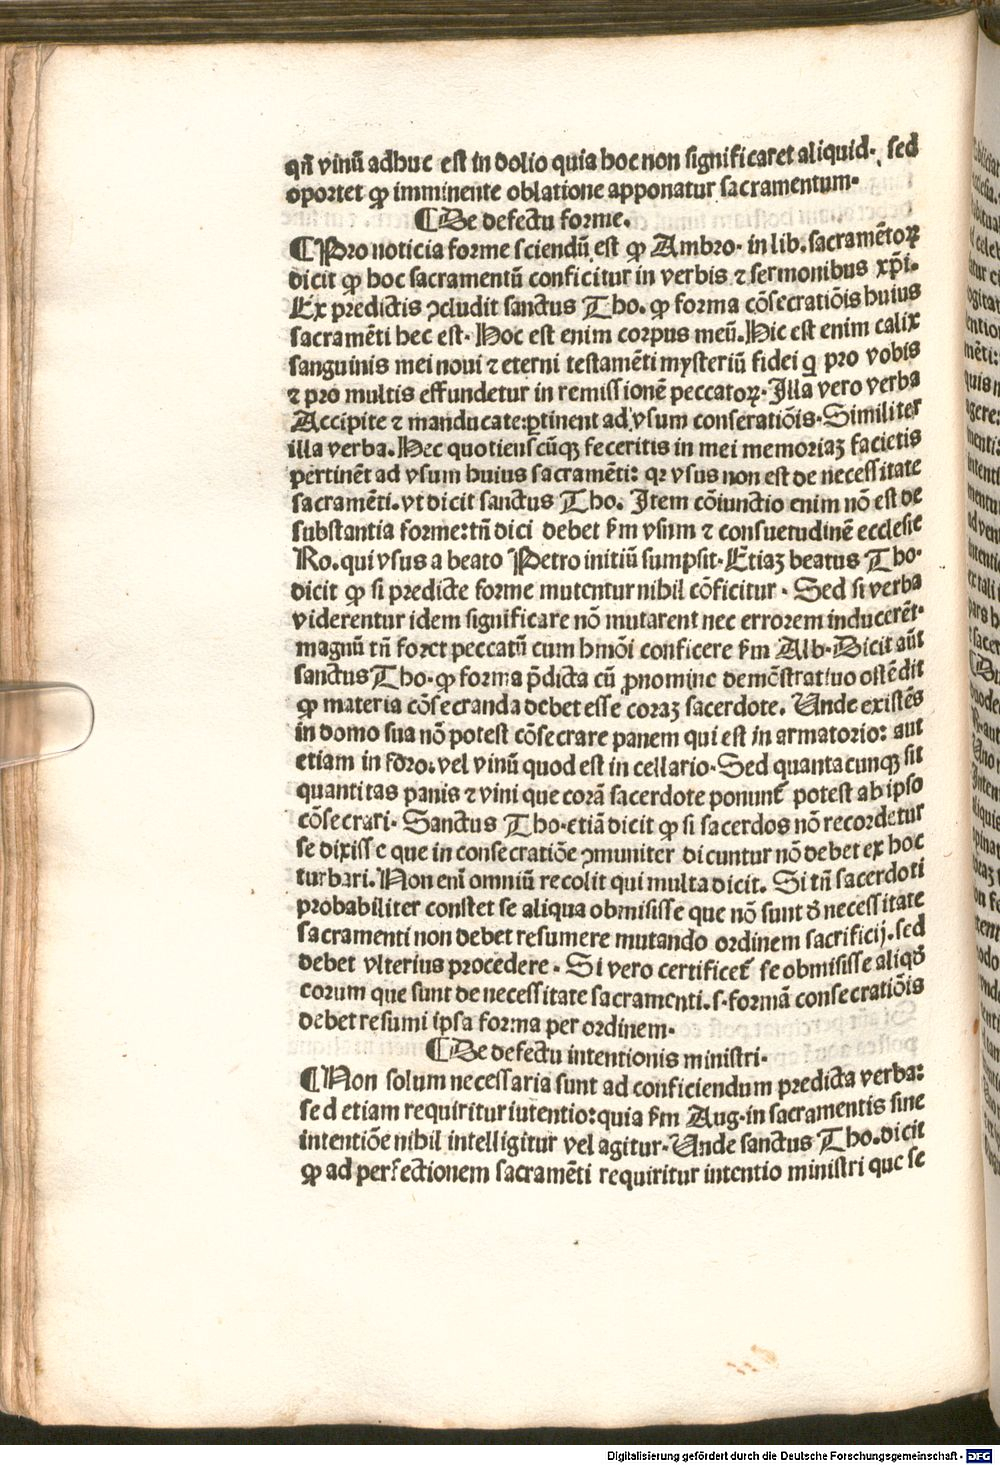 qñ vinũ adhuc est in dolio quia hoc non significaret aliquid. sed
oportet ꝙ imminente oblatione apponatur sacramentum.
¶ De defectu forme.
¶ Pro noticia forme sciendũ est ꝙ Ambro. in lib. sacramẽtoꝝ
dicit ꝙ hoc sacramentũ conficitur in verbis ⁊ sermonibus xp̃i.
Ex predictis ꝯcludit sanctus Tho. ꝙ forma cõsecratiõis huius
sacramẽti hec est. Hoc est enim corpus meũ. Hic est enim calix
sanguinis mei noui ⁊ eterni testamẽti mysteriũ fidei q̇ pro vobis
⁊ pro multis effundetur in remissionẽ peccatoꝝ. Illa vero verba
Accipite ⁊ manducate: ꝑtinent ad vsum conseratiõis. Similiter
illa verba. Hec quotienscũqꝫ feceritis in mei memoriaꝫ facietis
pertinẽt ad vsum huius sacramẽti: qꝛ vsus non est de necessitate
sacramẽti. vt dicit sanctus Tho. Item cõiunctio enim nõ est de
substantia forme: tñ dici debet ẜm vsum ⁊ consuetudinẽ ecclesie
Ro. qui vsus a beato Petro initiũ sumpsit. Etiaꝫ beatus Tho.
dicit ꝙ si predicte forme mutentur nihil cõficitur. Sed si verba
viderentur idem significare nõ mutarent nec errorem inducerẽt.
magnũ tñ foret peccatũ cum hmõi conficere ẜm Alb. Dicit aũt
sanctus Tho. ꝙ forma p̃dicta cũ ꝓnomine demõstratiuo ostẽdit
ꝙ materia cõsecranda debet esse coraꝫ sacerdote. Unde existẽs
in domo sua nõ potest cõsecrare panem qui est in armatorio: aut
etiam in foro. vel vinũ quod est in cellario. Sed quantacunqꝫ sit
quantitas panis ⁊ vini que corã sacerdote ponunt᷑ potest ab ipso
cõsecrari. Sanctus Tho. etiã dicit ꝙ si sacerdos nõ recordetur
se dixisse que in consecratiõe ꝯmuniter dicuntur nõ debet ex hoc
turbari. Non eni᷑ omniũ recolit qui multa dicit. Si tñ sacerdoti
probabiliter constet se aliqua obmisisse que nõ sunt ð necessitate
sacramenti non debet resumere mutando ordinem sacrificij. sed
debet vlterius procedere. Si vero certificet᷑ se obmisisse aliqð
eorum que sunt de necessitate sacramenti. s. formã consecratiõis
debet resumi ipsa forma per ordinem.
¶ De defectu intentionis ministri.
¶ Non solum necessaria sunt ad conficiendum predicta verba:
sed etiam requiritur iutentio: quia ẜm Aug. in sacramentis sine
intentiõe nihil intelligitur vel agitur. Unde sanctus Tho. dicit
ꝙ ad perfectionem sacramẽti requiritur intentio ministri que se
Digitalisierung gefördert durch die Deutsche Forschungsgemeinschaft - DFG